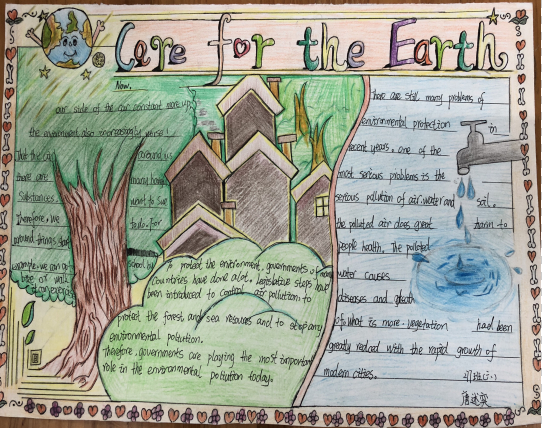 Care for the Earth
Now,
our side of the car constant more up,
the environment also increasingly worse!
around us
there are many harm
Substances. want to Sue
Therefore, we todo. for
around things start
example. we can
To protect the environment, governments of many
Countries have done alot. Legislative steps have
been introduced to control air pollution. to
protect the forest and sea resoures and to stop any
environmental pollution.
Therefore, governments are playing the most important
role in the environmental pollution today.
here are still many problems of
environmental protection in
recent years. one of the
most serious problems is the
serious pollution of air. water and soil.
the polluted air does great harm to
people health. The polluted
water causes
diseases and death
what is more. vegetation had been
greatly reduced with the rapid growth of
modern cities.